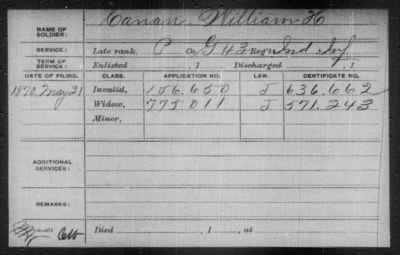 NAME OF SOLDIER: Canan, William H
SERVICE: Late rank, P Co G 43 Reg't Ind Inf
TERM OF SERVICE: Enlisted , 1 Discharged , 1
DATE OF FILING. CLASS. APPLICATION NO. LAW. CERTIFICATE NO.
1870, May 21 Invalid, 156.650 J 636.662
Widow, 775011 J 571.243
Minor,
ADDITIONAL SERVICES:
REMARKS:
Died , 1 , at